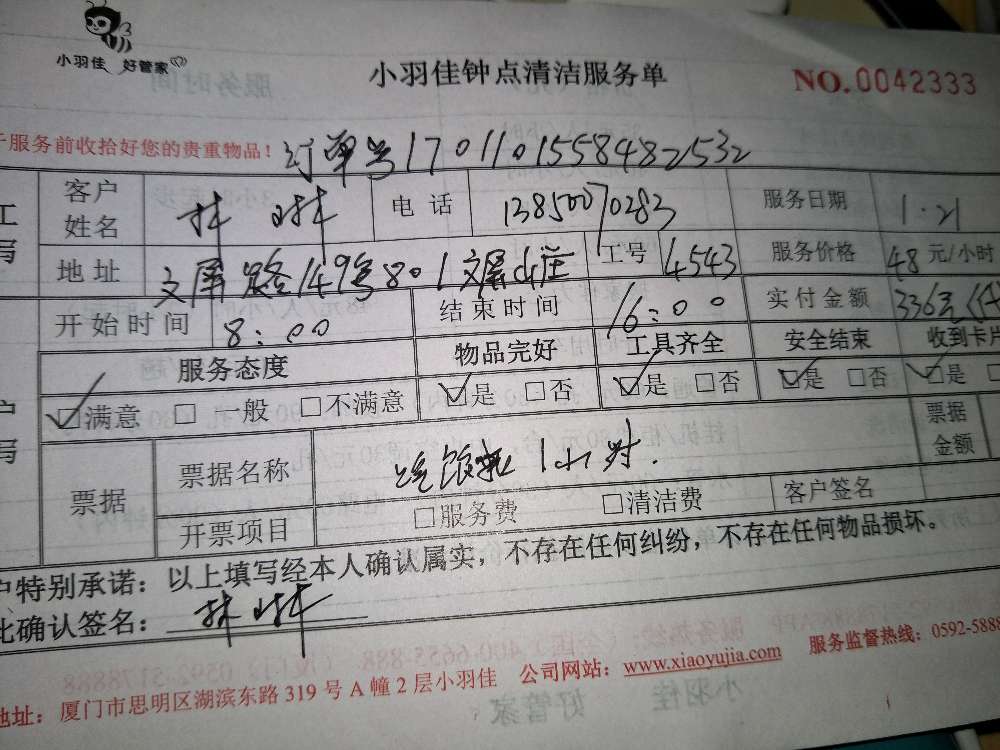 小羽佳 好管家
小羽佳钟点清洁服务单
NO.0042333
于服务前收拾好您的贵重物品！
订单号17011015584482532
工
写
客户姓名 林 电话 13850070283 服务日期 1.21
地址 文屏路149号801文屏山庄 工号 4543 服务价格 48元/小时
开始时间 8:00 结束时间 16:00 实付金额 336元
服务态度 物品完好 工具齐全 安全结束 收到卡片
☑满意 □一般 □不满意 ☑是 □否 ☑是 □否 ☑是 □否 ☑是
户
写
票据 票据名称 吃饭 1小时. 票据金额
开票项目 □服务费 □清洁费 客户签名
户特别承诺：以上填写经本人确认属实，不存在任何纠纷，不存在任何物品损坏。
此确认签名： 林
地址：厦门市思明区湖滨东路319号A幢2层小羽佳 公司网站：www.xiaoyujia.com 服务监督热线：0592-5888